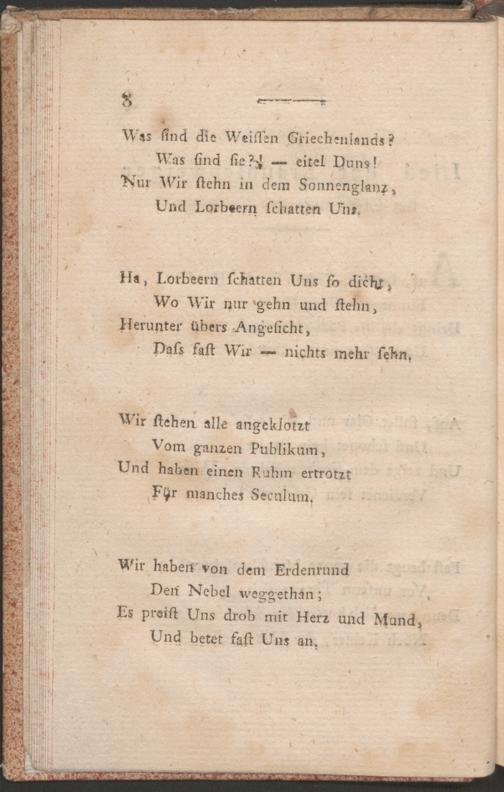 8
Was ſind die Weiſſen Griechenlands?
Was ſind ſie?! — eitel Duns!
Nur Wir ſtehn in dem Sonnenglanz,
Und Lorbeern ſchatten Uns.
Ha, Lorbeern ſchatten Uns ſo dicht,
Wo Wir nur gehn und ſtehn,
Herunter übers Angeſicht,
Daſs faſt Wir — nichts mehr ſehn.
Wir ſtehen alle angeklotzt
Vom ganzen Publikum,
Und haben einen Ruhm ertrotzt
Für manches Seculum.
Wir haben von dem Erdenrund
Den Nebel weggethan;
Es preiſt Uns drob mit Herz und Mund,
Und betet faſt Uns an.